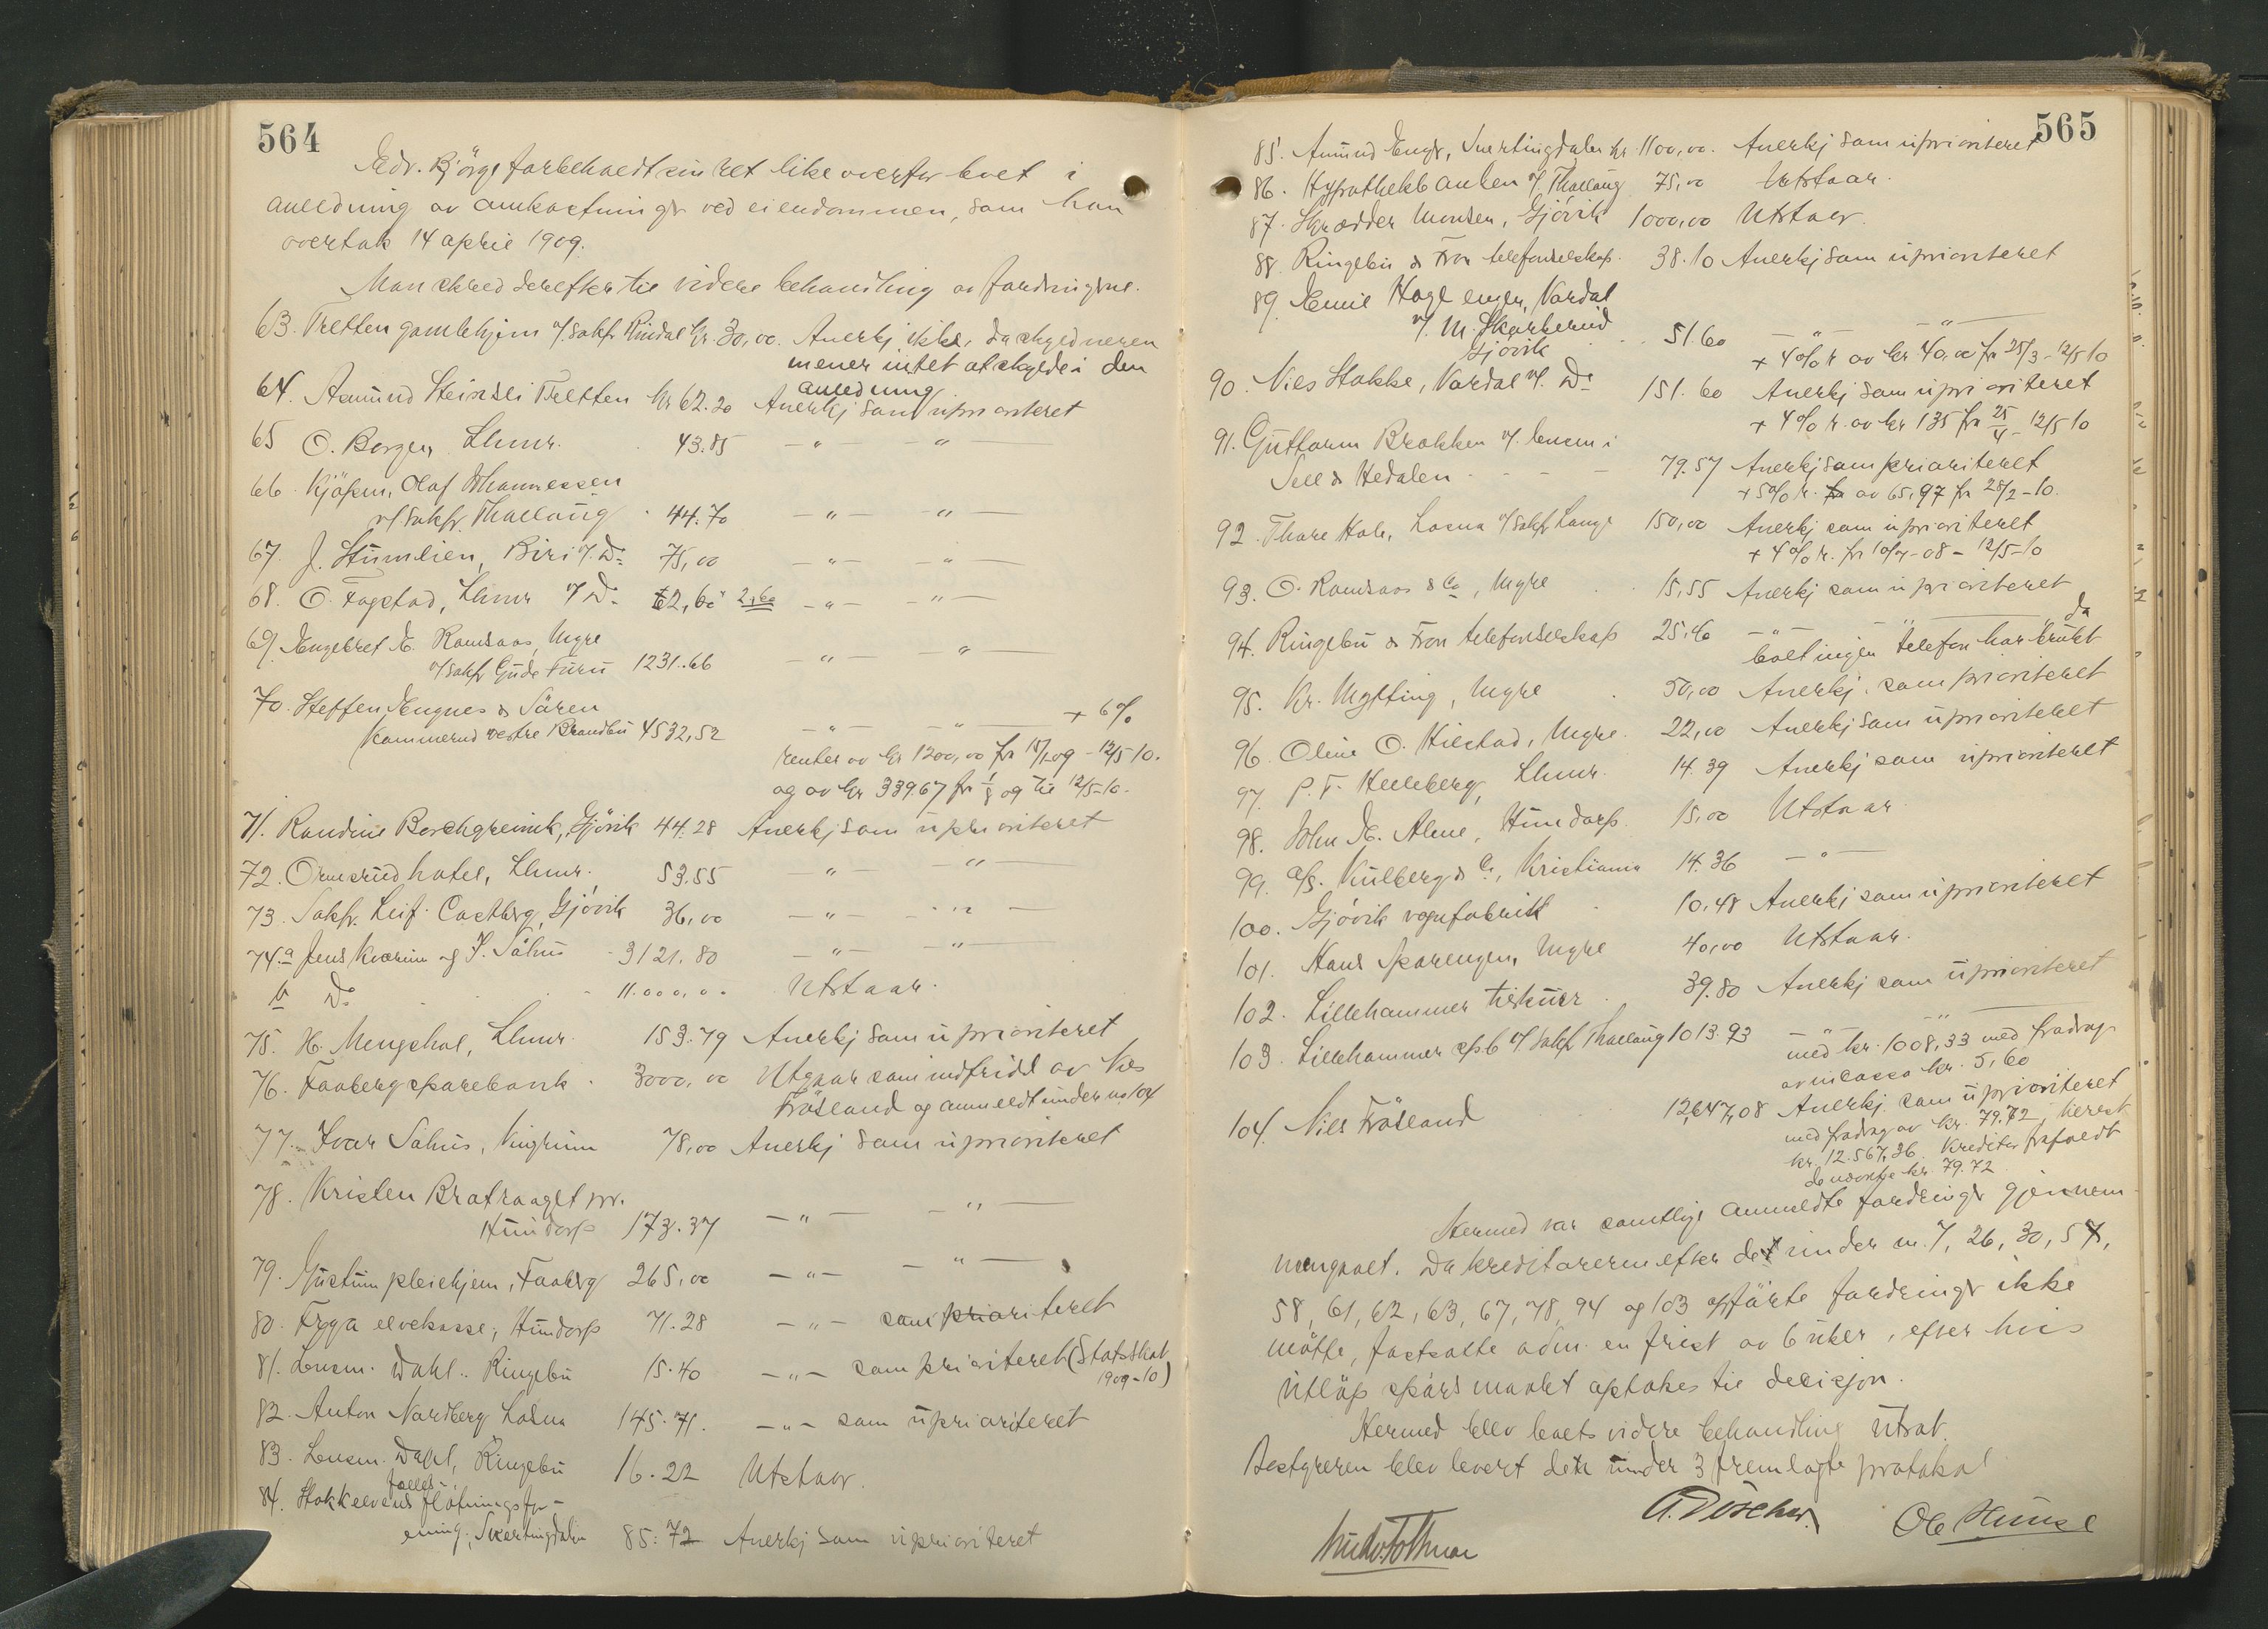 564
Edv. Bjørge forbeholdt sin ret likeoverfor boet i
anledning av omkostninger ved eiendommen, som han
overtok 14 april 1909.
Man skred derefter til videre behandling av fordringerne.
63. Tretten gamlehjem v/ sakf. Rindal kr. 30,00. Anerkj ikke, da skyldneren
mener intet at skylde i den
anledning
64. Asmund Steinsli Tretten kr 62.20 Anerkj som uprioriteret
65 O. Borgen Lhmr. 43.85 — " — — " —
66. Kjøpm. Olaf Johannessen
v/ sakf. Thallaug 44.70 — " — — " —
67. J. Stumlien, Biri v. Do 75,00 — " — — " —
68. O. Fagstad, Lhmr v Do 62,60 2,60 — " — — " —
69. Engebret E. Ramsaas, Myre
v/ sakf Gude Furu 1231.66 — " — — " —
70. Steffen Engnes & Søren
Kammerud vestre Brandbu 4532,52 — " — — " — + 6%
renter av kr 1200,00 fra 15/1-09 - 12/5-10.
og av kr 339.67 fra 1/8 09 til 12/5-10.
71. Randine Borchgrevink, Gjøvik 44.28 Anerkj som uprioriteret
72. Ormsrud hotel, Lhmr. 53.55 — " — — " —
73. Sakf. Leif Castberg, Gjøvik 36,00 — " — — " —
74.a Jens Kværum og J. Sålhus 3121.80 — " — — " —
b Do 11.000,00 Utstaar.
75. H. Mengshol, Lhmr. 153.79 Anerkj som uprioriteret
76. Faaberg sparebank. 3000,00 Utgaar som indfridd av Nils
Frøsland og anmeldt under no 104
77. Ivar Sålhus, Vingrum 78,00 Anerkj som uprioriteret
78. Kristen Bratraaget pr.
Hundorp 173.37 — " — — " —
79. Gustum pleiehjem, Faaberg 265,00 — " — — " —
80. Fryja elvekasse, Hundorp 71.28 — " — som prioriteret
81. Lensm. Dahl. Ringebu 15.40 — " — som prioriteret (Statsskat
1909-10)
82. Anton Nordberg Losna 145.71. — " — som uprioriteret
83. Lensm. Dahl, Ringebu 16.22 Utstaar.
84. Stokkelvens fælles fløtningsfor-
ening, Snertingdalen 85.72 Anerkj som uprioriteret
565
85. Amund Enger, Snertingdalen kr. 1100,00. Anerkj som uprioriteret
86. Hypothekbanken v/ Thallaug 75,00 Utstaar.
87. Skrædder Monsen, Gjøvik 1000,00 Utstaar.
88. Ringebu & Fron telefonselskap. 38.10 Anerkj som uprioriteret
89. Emil Haglengen, Vardal
v. M. Skarherud
Gjøvik 51.60 — " — — " —
+ 4% r av kr 40,00 fra 25/3 - 12/5 10
90. Nils Stokke, Vardal v. Do 151.60 Anerkj som uprioriteret
+ 4% r. av kr 135 fra 25/4 - 12/5 10
91. Guttorm Brokken v. lensm i
Sell & Hedalen 79.57 Anerkj som prioriteret
+ 5% r. av 65,97 fra 28/2-10.
92. Thore Hole, Losna v/ sakf. Lange 150,00 Anerkj som uprioriteret
+ 4% r. fra 10/7-08 - 12/5-10
93. O. Ramsaas & Co, Myre 15,55 Anerkj som uprioriteret
94. Ringebu & Fron telefonselskap 25.40 — " — — " — da
boet ingen telefon har brukt
95. Kr. Mytting, Myre 50,00 Anerkj. som prioriteret
96. Oline O. Hilstad, Myre. 22,00 Anerkj som uprioriteret
97. P. T. Helleberg, Lhmr. 14.39 Anerkj som uprioriteret
98. John E. Alme, Hundorp. 15,00 Utstaar
99. A/S. Kulberg & Co, Kristiania 14.36 — " —
100. Gjøvik vognfabrikk 10.48 Anerkj som uprioriteret
101. Hans Sparengen, Myre 40,00 Utstaar.
102. Lillehammer tilskuer 39.80 Anerkj som uprioriteret
103. Lillehammer spb v/ sakf Thallaug 1013.93 — " — — " —
med kr. 1008,33 med fradrag
av incasso kr. 5,60
104. Nils Frøsland 12,647,08 Anerkj. som uprioriteret
med fradrag av kr. 79.72, herest
kr. 12.567,36. Kreditor frafaldt
de nævnte kr. 79.72.
Hermed var samtlige anmeldte fordringer gjennem-
mengaaet. Da kreditorerne efter de under nr. 7, 26, 30, 57,
58, 61, 62, 63, 67, 78, 94 og 103 opførte fordringer ikke
møtte, fastsatte adm. en frist av 6 uker, efter hvis
utløp spørsmaalet optakes til decisjon.
Hermed blev boets videre behandling utsat.
Bestyreren blev levert de under 3 fremlagte protokol
Ole Hunse